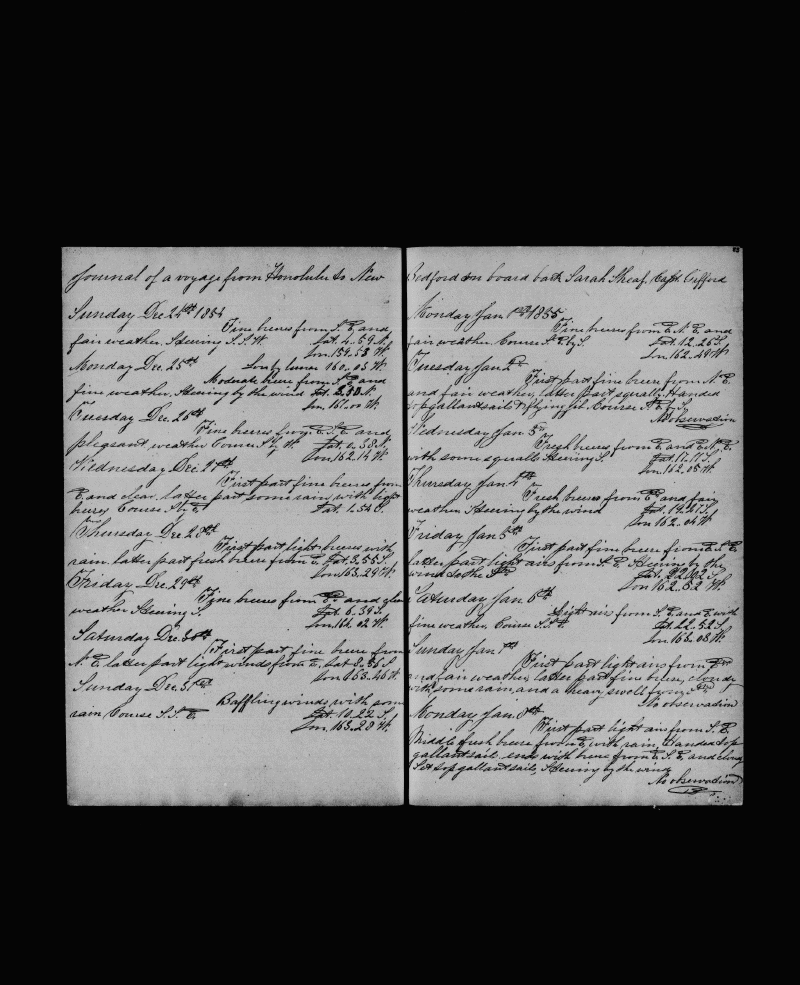 Journal of a voyage from Honolulu to New
Sunday Dec. 24th 1854
Fine breeze from S. E. and
fair weather. Steering S.S.W. Lat. 4.59 N.
Lon. 159.53 W.
Monday Dec. 25th Lon by lunar 160.03 W.
Moderate breeze from S. E. and
fine weather. Steering by the wind Lat. 2.30 N.
Lon. 161.00 W.
Tuesday Dec. 26th
Fine breezes from E. S. E. and
pleasant weather Course S by W Lat. 0.38 N.
Lon. 162.14 W.
Wednesday Dec. 27th
First part fine breeze from
E. and clear. latter part some rain, with light
breeze, Course Lat. 1.54 S.
Thursday Dec. 28th
First part light breezes with
rain. latter part fresh breeze from E. Lat. 3.55 S.
Lon. 163.29 W.
Friday Dec. 29th
Fine breezes from and
weather Steering S. Lat. 6.39 S.
Lon. 164.02 W.
Saturday Dec. 30th
First part fine breeze from
N. E. latter part light winds from E. Lat 8.56 S.
Lon 163.46 W.
Sunday Dec. 31st
Baffling winds with some
rain. Course S.S.E. Lat. 10.22 S.
Lon. 163.28 W.
Bedford on board bark Sarah Sheaf. Capt. Gifford
Monday Jan 1st 1855
Fine breeze from E.N.E. and
fair weather. Course S. by S. Lat. 12.26 S.
Lon. 162.49 W.
Tuesday Jan 2d
First part fine breeze from N. E.
and fair weather, latter part squally. Handed
topgallantsails & flying jib. Course S. by S.
No observation
Wednesday Jan 3d
Fresh breezes from E. and E.N.E.
with some squalls. Steering S. Lat. 17.17 S.
Lon. 162.05 W.
Thursday Jan 4th
Fresh breezes from E. and fair
weather. Steering by the wind Lat. 19.21 S.
Lon 162.04 W.
Friday Jan 5th
First part fine breeze from E.S.E.
latter part light airs from S. E. Steering by the
wind to the Lat. 22.02 S.
Lon 162.52 W.
Saturday Jan 6th
Light air from S. E. and E. with
fine weather. Course S.S.E. Lat. 22.52 S.
Lon. 163.08 W.
Sunday Jan 7th
First part light airs from
and fair weather, latter part fine breeze, cloudy
with some rain, and a heavy swell from
No observation
Monday Jan 8th
First part light airs from S. E.
Middle fresh breeze from E. with rain, Handed top
gallantsail. ends with breeze from E. S. E. and cloudy
Set topgallantsails, Steering by the wind
No observation